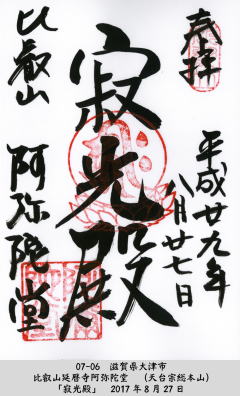 奉拝
平成廿九年
八月廿七日
寂光殿
比叡山
阿弥陀堂
07-06 滋賀県大津市
比叡山延暦寺阿弥陀堂 (天台宗総本山)
「寂光殿」 2017年8月27日